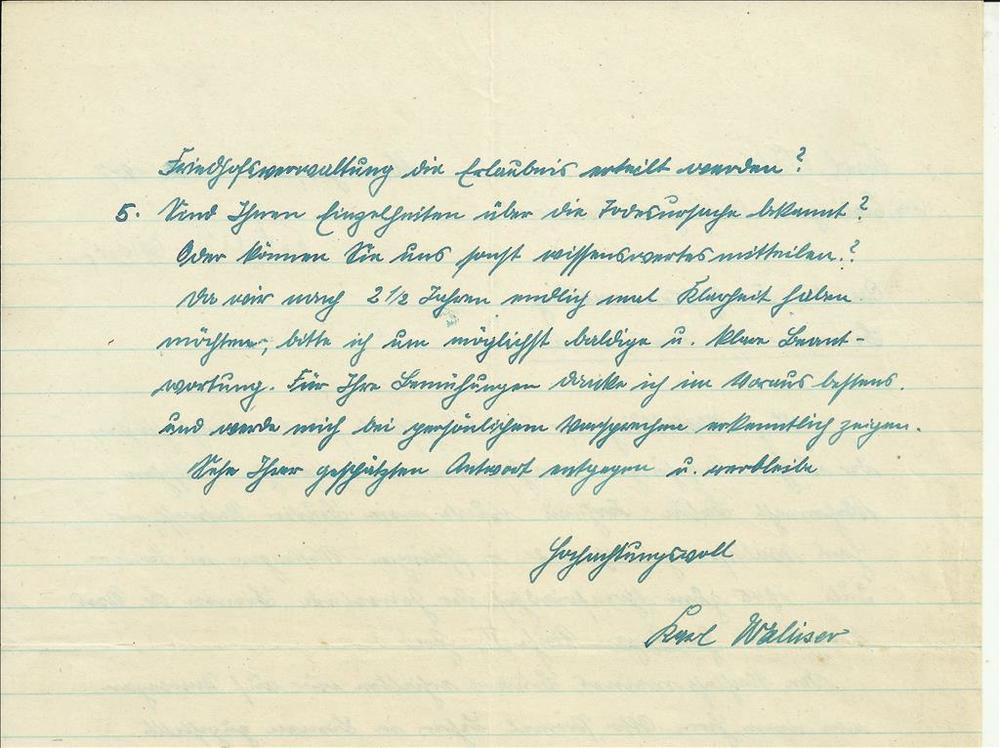 Friedhofsverwaltung die Erlaubnis erteilt werden?
5. Sind Ihnen Einzelheiten über die Todesursache bekannt?
Oder können Sie uns sonst wissenswertes mitteilen.?
Da wir nach 2 1/2 Jahren endlich mal Klarheit haben
möchten, bitte ich um möglichst baldige u. klare Beant-
wortung. Für Ihre Bemühungen danke ich im Voraus bestens.
und werde mich bei persönlichem Vorsprechen erkenntlich zeigen.
Sehe Ihrer geschätzten Antwort entgegen u. verbleibe
Hochachtungsvoll
Karl Walliser